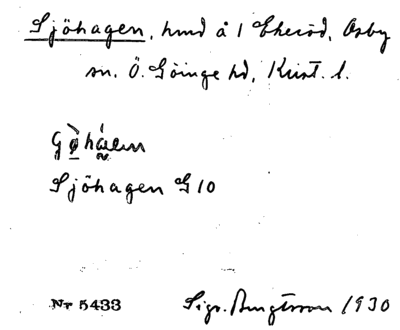 Sjöhagen, hmd å 1 Ekeröd, Osby
sn. Ö. Göinge hd, Krist. l.
Sjöhagen G 10
Nr 5433 Sigv. Bengtsson 1930